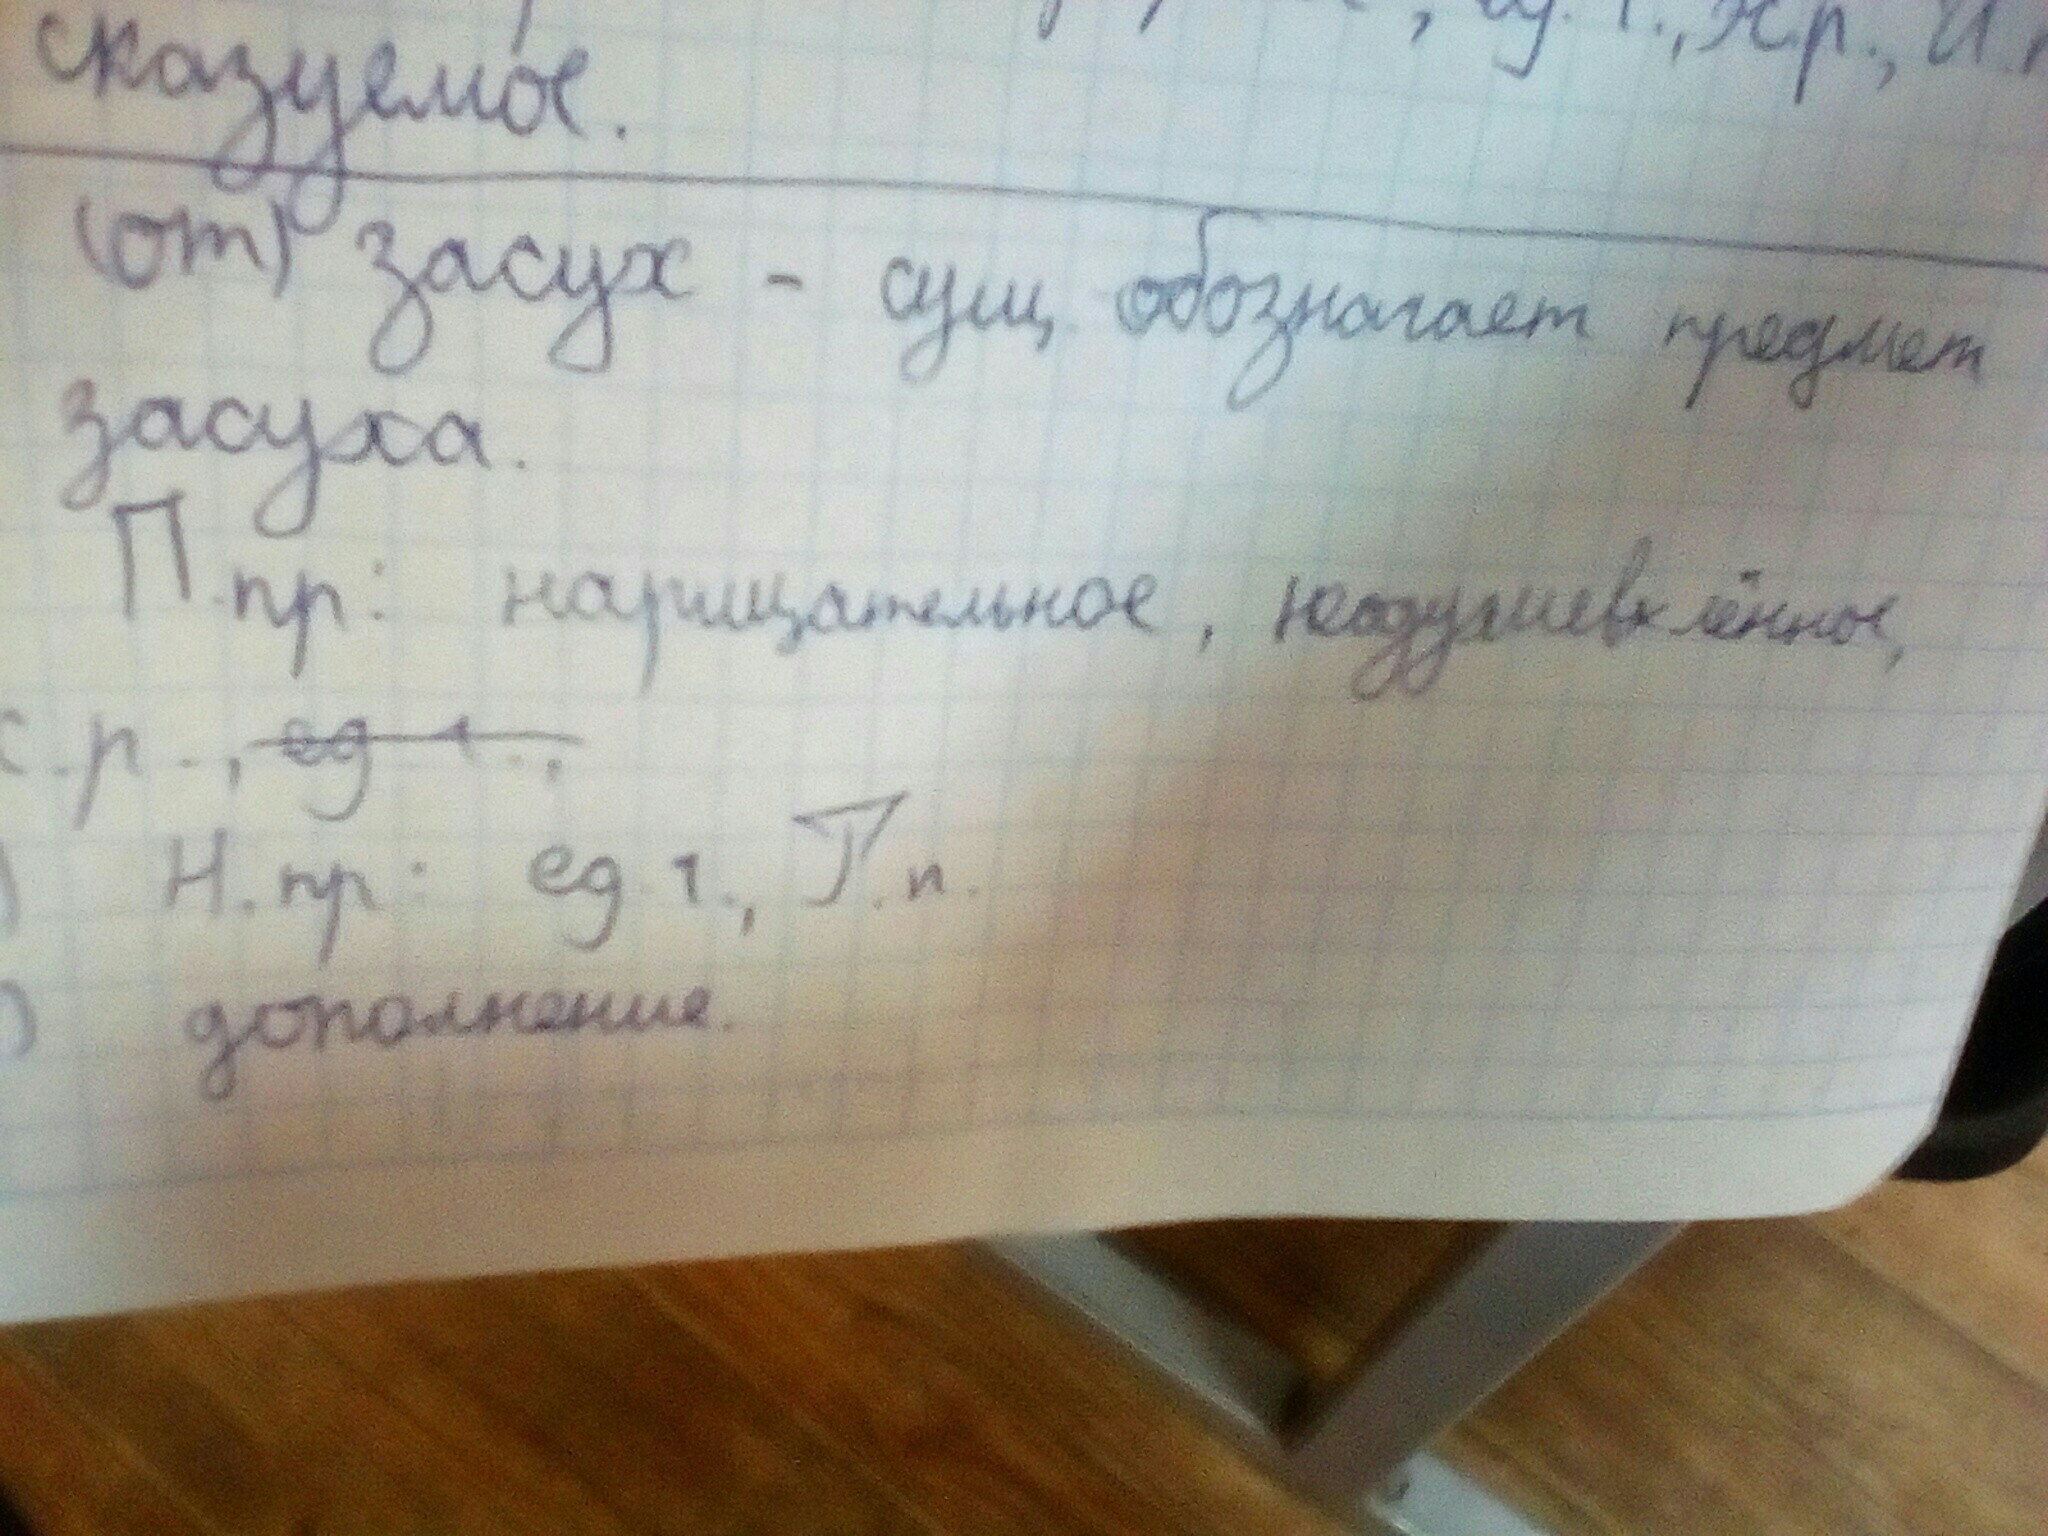 , И.
сказуемое.
(от) засух - сущ. обозначает предмет
засуха.
П.пр: нарицательное, неодушевлённое,
.р., ед ч.,
) Н.пр: ед.ч., Р.п.
) дополнение.